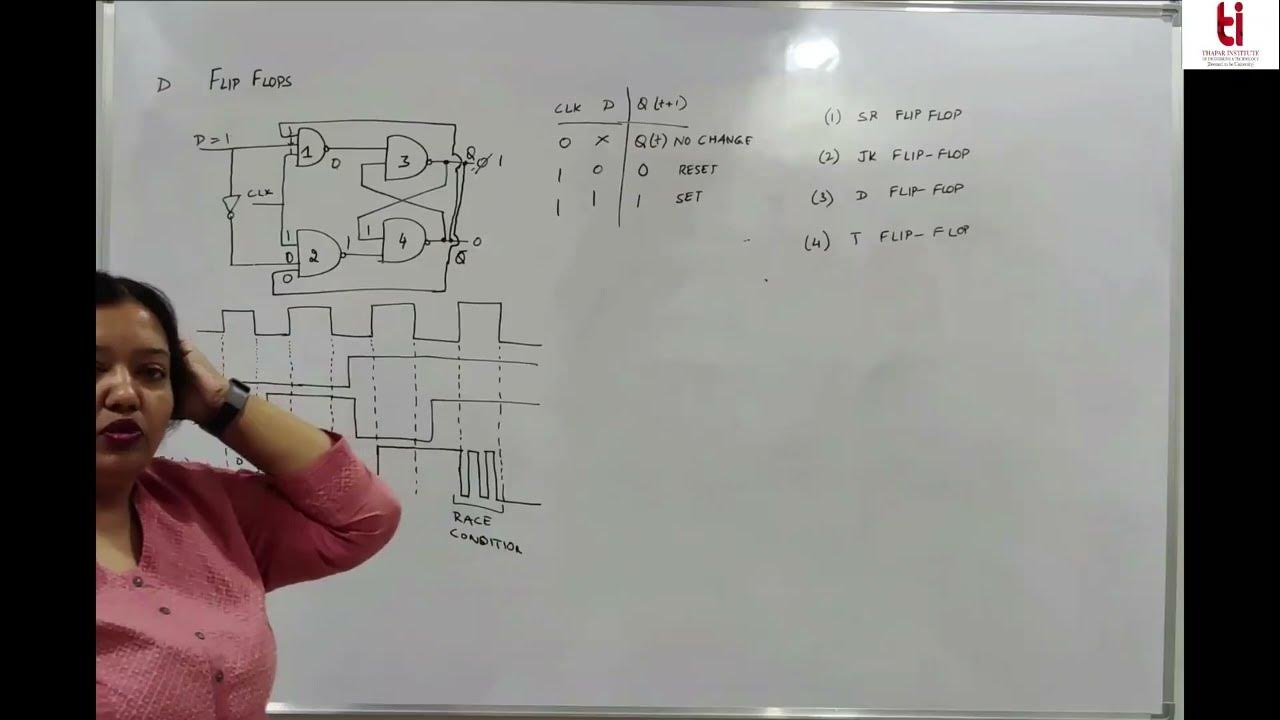 D FLIP FLOPS
D=1
CLK
1
1
0
1
3
Q
0 1
1
D
0
2
1
1
4
0
Q̅
CLK D Q(t+1)
0 X Q(t) NO CHANGE
1 0 0 RESET
1 1 1 SET
(1) SR FLIP FLOP
(2) JK FLIP-FLOP
(3) D FLIP-FLOP
(4) T FLIP-FLOP
0
RACE
CONDITION
ti
THAPAR INSTITUTE
OF ENGINEERING & TECHNOLOGY
(Deemed to be University)